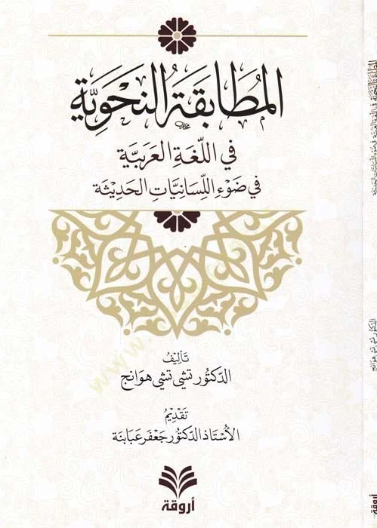 المُطَابَقَةُ النَّحْوِيَّة
فِي اللُّغَةِ العَرَبِيَّة
فِي ضَوْءِ اللِّسَانِيَّاتِ الحَدِيثَة
تَأْلِيفُ
الدكتور تشي تشي هوانج
تَقْدِيمُ
الأُسْتَاذ الدكتور جَعْفَر عَبَابنة
أروقة